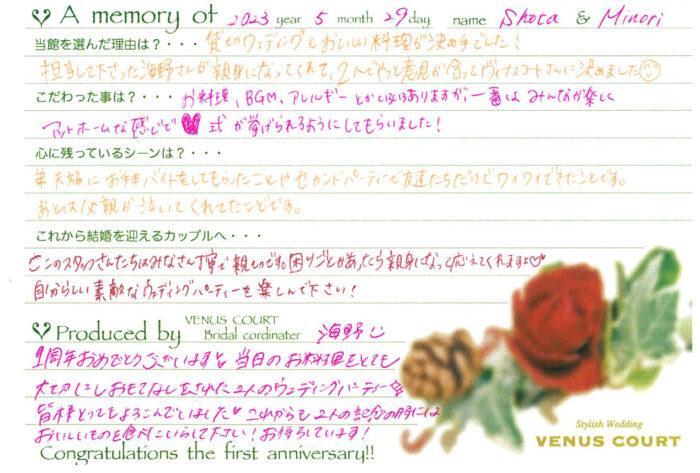 A memory of 2023 year 5 month 29 day name Shota & Minori
当館を選んだ理由は？・・・貸切ウェディングとおいしい料理が決め手でした！
担当して下さった海野さんが親身になってくれて、2人でやっと意見が合ってヴィーナスコートさんに決めました
こだわった事は？・・・お料理、BGM、アレルギーとかいろいろありますが、一番はみんなが楽しく
アットホームな感じで 式が挙げられるようにしてもらいました！
心に残っているシーンは？・・・
弟夫婦にお手本バイトをしてもらったことやセカンドパーティーで友達たちだけでワイワイできたことです。
あとは父親が泣いてくれてたことです。
これから結婚を迎えるカップルへ・・・
ここのスタッフさんたちはみなさん丁寧で親切です。困りごとがあったら親身になって応えてくれますよ
自分らしい素敵なウェディングパーティーを楽しんで下さい！
Produced by VENUS COURT Bridal cordinater 海野
1周年おめでとうございます 当日のお料理をとても
大切にしおもてなしをされた2人のウェディングパーティー
皆様とってもよろこんでいました これからも2人の記念の時には
おいしいものを食べにいらして下さい！お待ちしています！
Congratulations the first anniversary!!
Stylish Wedding
VENUS COURT